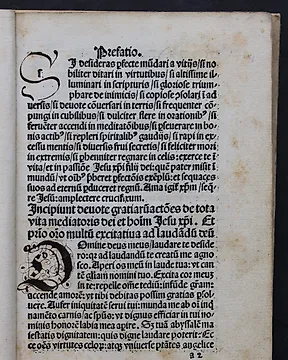 Prefatio.
SI desideras pfecte mũdari a vitijs/ si no
biliter ditari in virtutibus/ si altissime il
luminari in scripturis/ si gloriose trium
phare de inimicis/ si copiose ꝯsolari ĩ ad
uersis/ si deuote cõuersari in terris/ si frequenter cõ
pungi in cubilibus/ si dulciter flere in orationibꝰ/ si
feruẽter accendi in meditatiõibus/ si pseuerare in bo
nis actibꝰ/ si repleri spiritalibꝰ gaudijs/ si rapi in ex
cessu mentis/ si diuersis frui secretis/ si feliciter mori
in extremis/ si phenniter regnare in celis: exerce te ĩ
vita/ et in passiõe Jesu xp̃i filij dei: quẽ pater misit ĩ
mundũ/ vt oibꝰ pberet pfectiõis exẽplũ: et sequaces
suos ad eternũ pduceret regnũ. Ama igit xp̃m/ seq̃
re Jesu: amplectere crucifixum.
Incipiunt deuote gratiarũactões de tota
vita mediatoris dei et hoim Jesu xp̃i. Et
prio oro multũ excitatiua ad laudãdũ deũ
DOmine deus meus/ laudare te deside
ro: qa ad laudandũ te creatũ me agno
sco. Aperi os meũ in laude tua: vt can
tẽ gliam nomini tuo. Excita cor meuȝ
in te: repelle oĩne tediũ: infũde gratiam:
accende amorẽ: vt tibi debitas possim gratias psol
uere. Aufer iniquitatẽ serui tui: munda me ab oĩ inq̃
namẽto carnis/ ac spũs: vt dignus efficiar in tui no
minis honorẽ labia mea apire. Sȝ tuã abyssalẽ ma
iestatis dignitatẽ: quis digne laudare poterit: Ec
ce oẽs virtutes celoꝝ/ atqȝ vniuerse ptãtes angelice
a 2